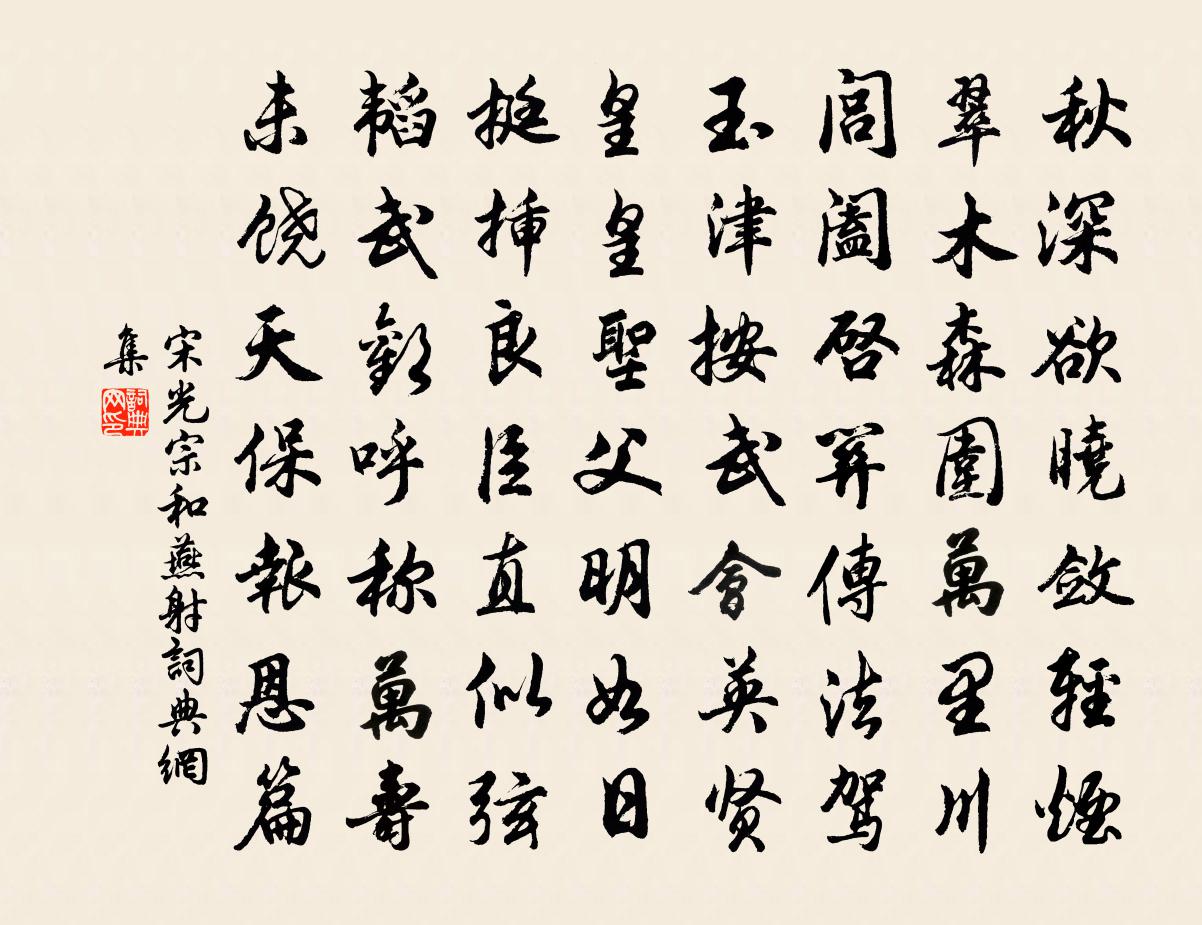 秋深欲曉斂輕煙
翠木森圍萬里川
閶闔啓關傳法駕
玉津按武會英贤
皇皇聖父明如日
挺挿良臣直似弦
韜武歡呼称萬壽
未饶天保報恩篇
宋光宗和燕射詞典網
集
詞典网印